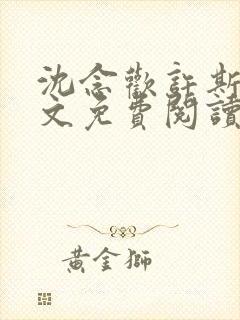 沈念歡許斯
文免費閱讀
黃金獅